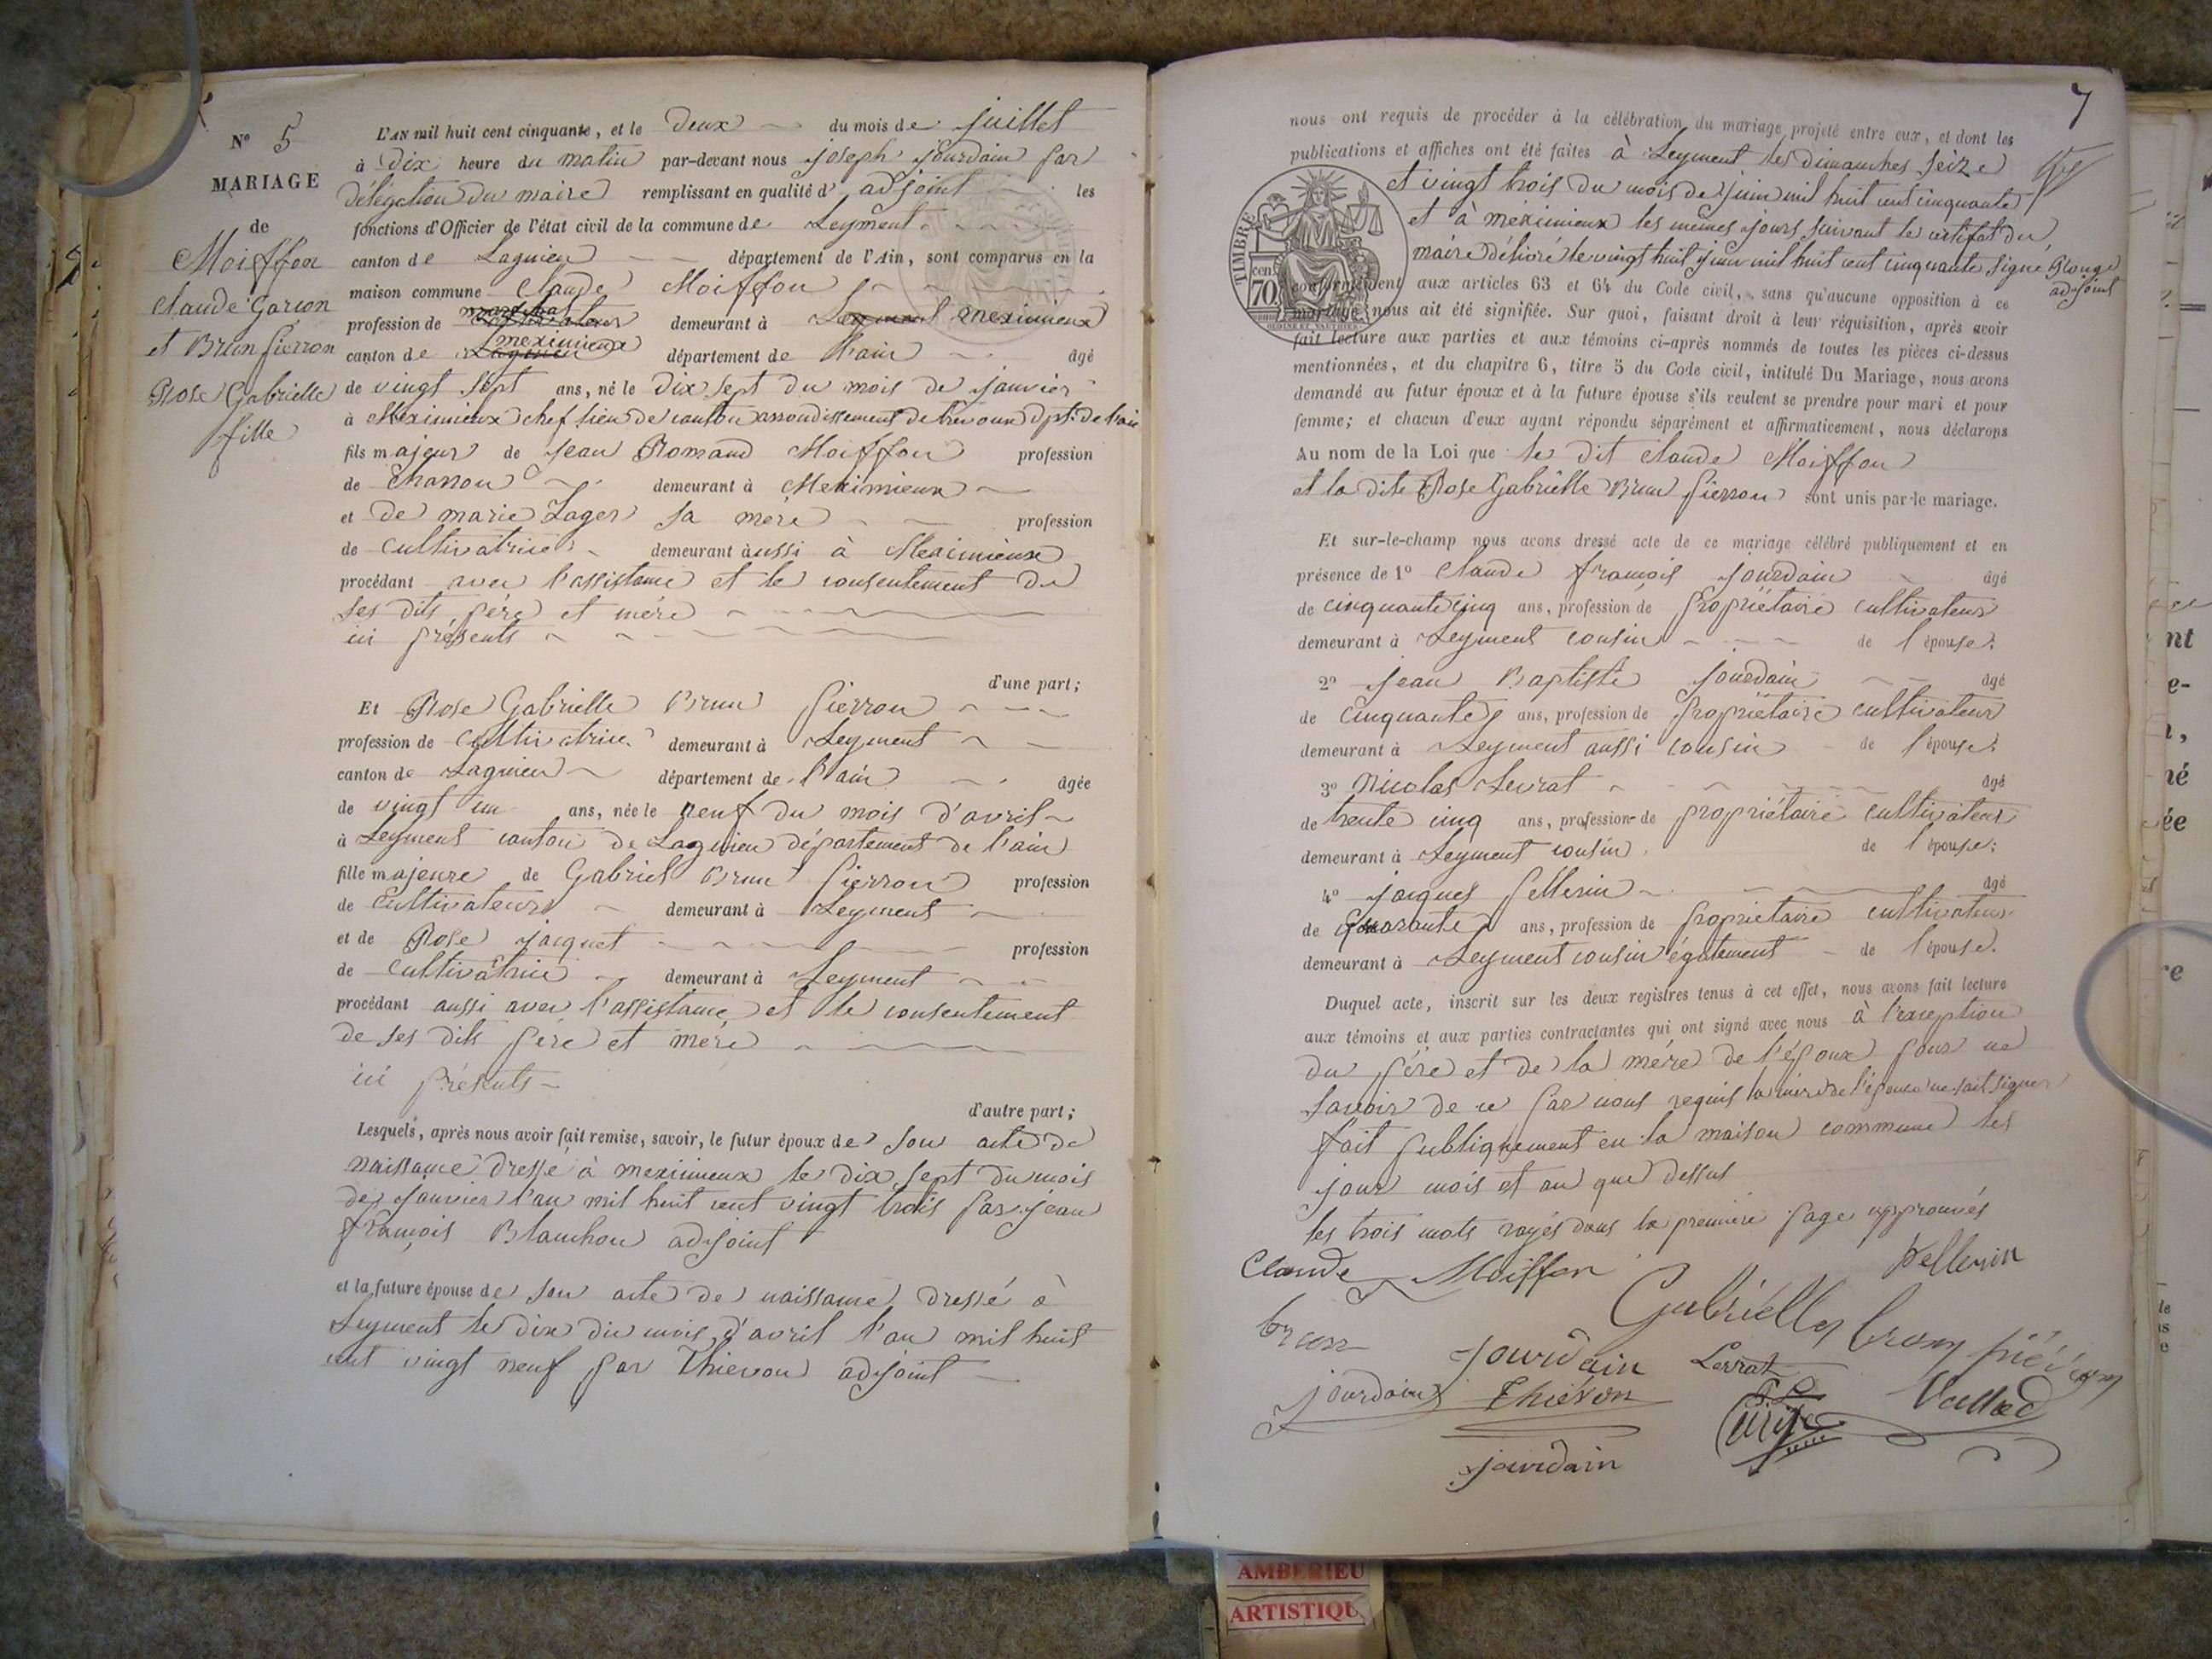 N° 5
MARIAGE
de
Moiffon
Claude Garçon
et Brun pierron
Rose Gabrielle
fille
L'AN mil huit cent cinquante, et le Deux du mois de juillet
à Dix heure du matin par-devant nous joseph jourdain par
délégation du maire remplissant en qualité d'adjoint les
fonctions d'Officier de l'état civil de la commune de Leyment
canton de Lagnieu département de l'Ain, sont comparus en la
maison commune Claude Moiffon
profession de demeurant à Leyment meximieux
meximieux
canton de Lagnieu département de l'ain âgé
de vingt sept ans, né le Dix sept du mois de janvier
à Meximieux chef lieu de canton arrondissement de trevoux dpt. de l'ain
fils majeur de jean Romand Moiffon profession
de Charron demeurant à Meximieux
et de marie Lager sa mère profession
de cultivatrice demeurant aussi à Meximieux
procédant avec l'assistance et le consentement de
ses dits père et mère
ici présents
d'une part;
Et Rose Gabrielle Brun pierron
profession de cultivatrice demeurant à Leyment
canton de Lagnieu département de l'ain âgée
de vingt un ans, née le neuf du mois d'avril
à Leyment canton de Lagnieu département de l'ain
fille majeure de Gabriel Brun pierron profession
de cultivateur demeurant à Leyment
et de Rose jacquet profession
de cultivatrice demeurant à Leyment
procédant aussi avec l'assistance et le consentement
de ses dits père et mère
ici présents
d'autre part;
Lesquels, après nous avoir fait remise, savoir, le futur époux de son acte de
naissance dressé à meximieux le dix sept du mois
de janvier l'an mil huit cent vingt trois par jean
françois Blanchon adjoint
et la future épouse de son acte de naissance dressé à
Leyment le dix du mois d'avril l'an mil huit
cent vingt neuf par Thievon adjoint
7
nous ont requis de procéder à la célébration du mariage projeté entre eux, et dont les
publications et affiches ont été faites à Leyment les dimanches seize
et vingt trois du mois de juin mil huit cent cinquante
et à meximieux les mêmes jours suivant le certifat du
maire délivré le vingt huit juin mil huit cent cinquante signé Rouge
adjoint
TIMBRE
cen.
70.
conformément aux articles 63 et 64 du Code civil, sans qu'aucune opposition à ce
mariage nous ait été signifiée. Sur quoi, faisant droit à leur réquisition, après avoir
fait lecture aux parties et aux témoins ci-après nommés de toutes les pièces ci-dessus
mentionnées, et du chapitre 6, titre 5 du Code civil, intitulé Du Mariage, nous avons
demandé au futur époux et à la future épouse s'ils veulent se prendre pour mari et pour
femme; et chacun d'eux ayant répondu séparément et affirmativement, nous déclarons
Au nom de la Loi que le dit claude Moiffon
et la dite Rose Gabrielle Brun pierron sont unis par le mariage.
Et sur-le-champ nous avons dressé acte de ce mariage célébré publiquement et en
présence de 1° claude françois jourdain âgé
de cinquante cinq ans, profession de propriétaire cultivateur
demeurant à Leyment cousin de l'épouse;
2° jean Baptiste jourdain âgé
de cinquante ans, profession de propriétaire cultivateur
demeurant à Leyment aussi cousin de l'épouse;
3° Nicolas Levrat âgé
de trente cinq ans, profession de propriétaire cultivateur
demeurant à Leyment cousin de l'épouse;
4° jacques pellerin âgé
de quarante ans, profession de propriétaire cultivateur
demeurant à Leyment cousin également de l'épouse.
Duquel acte, inscrit sur les deux registres tenus à cet effet, nous avons fait lecture
aux témoins et aux parties contractantes qui ont signé avec nous à l'exception
du père et de la mère de l'époux pour ne
savoir de ce par nous requis la mère de l'épouse ne sait signer
fait publiquement en la maison commune les
jour mois et an que dessus
les trois mots rayés dans la première page approuvés
Claude Moiffon pellerin
Gabriella brun piéron
brun jourdain Levrat
jourdain Thiévon Vallod
jourdain
AMBERIEU
ARTISTIQU